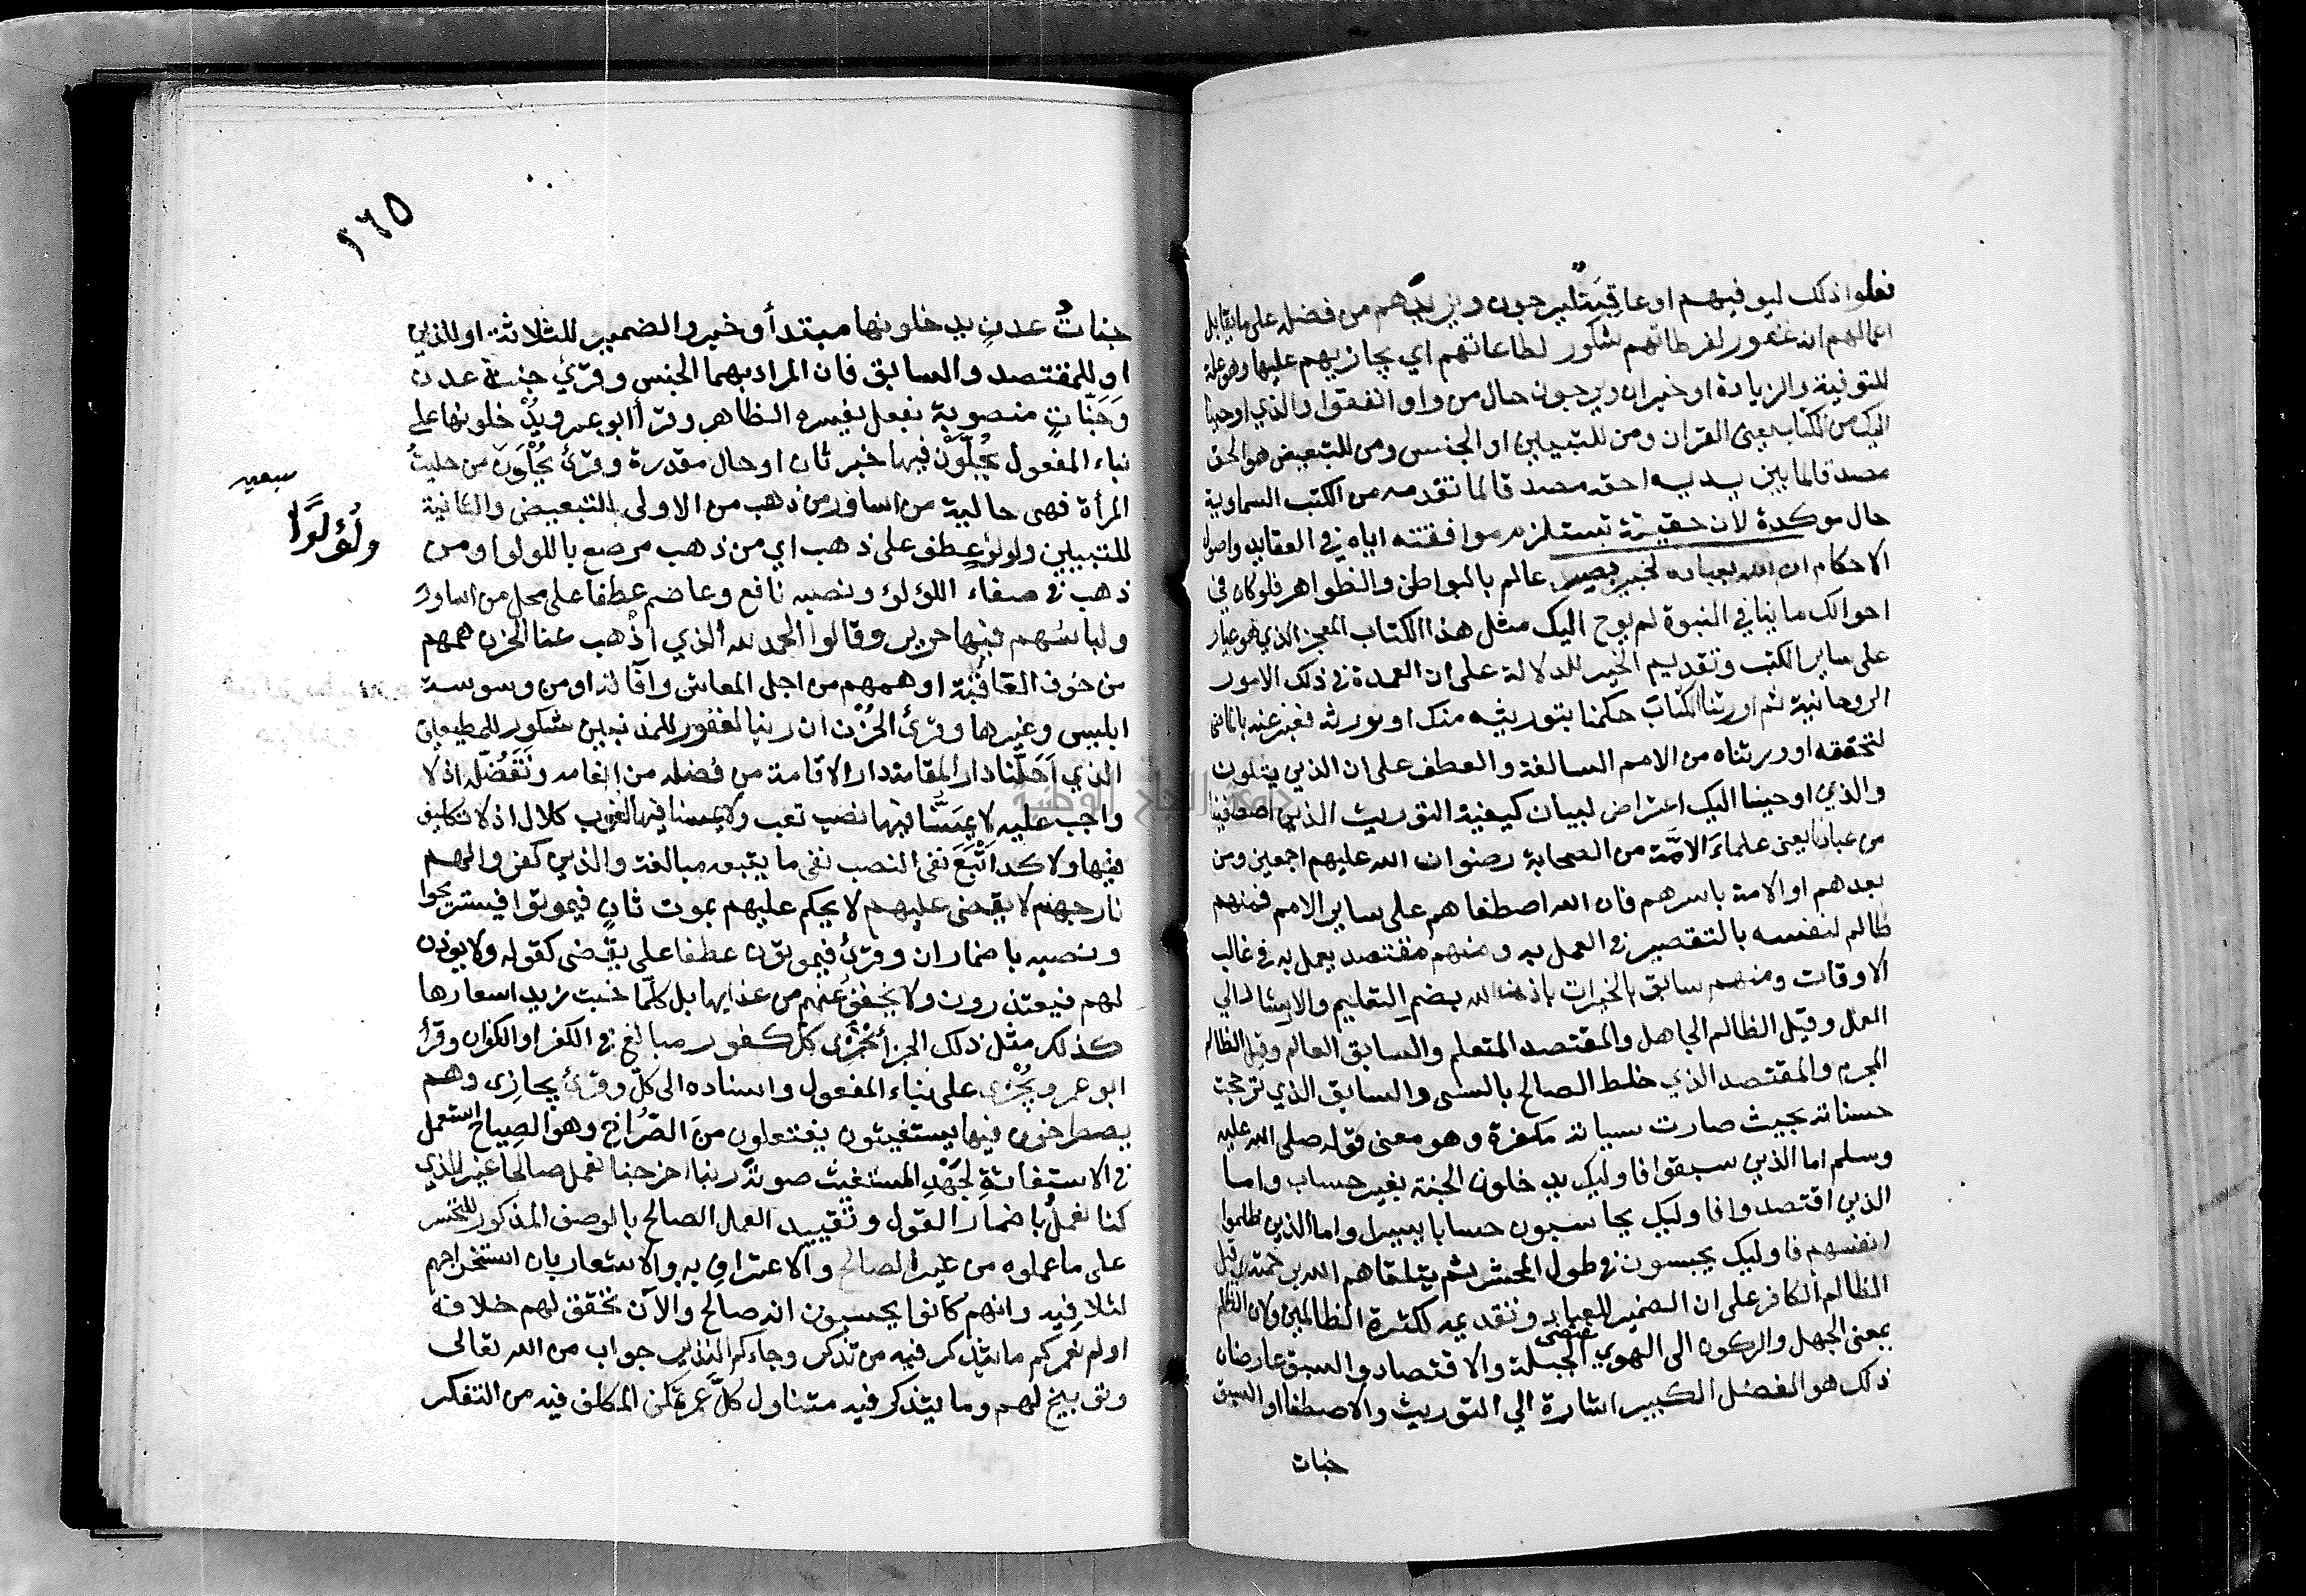 فعلوا ذلك ليوفيهم او عاقبة ليرجون ويزيدهم من فضله على ما يقابل
اعمالهم انه غفور لفرطاتهم شكور لطاعاتهم اي يجازيهم عليها وهو علة
للتوفية والزيادة او خبر ان ويرجون حال من واو انفقوا والذي اوحينا
اليك من الكتاب يعنى القران ومن للتبيين او الجنس ومن للتبعيض هو الحق
مصدقا لما بين يديه احقه مصدقا لما تقدمه من الكتب السماوية
حال موكدة لان حقيته تستلزم موافقته اياه في العقايد واصول
الاحكام ان الله بعباده لخبير بصير عالم بالبواطن والظواهر فلو كان في
احوالك ما ينافي النبوة لم يوح اليك مثل هذا الكتاب المعجز الذي هو عيار
على ساير الكتب وتقديم الخبير للدلالة على ان العمدة في ذلك الامور
الروحانية ثم اورثنا الكتاب حكمنا بتوريثه منك او نورثه فعبر عنه بالماضى
لتحققه او ورثناه من الامم السالفة والعطف على ان الذين يتلون
والذي اوحينا اليك اعتراض لبيان كيفية التوريث الذين اصطفينا
من عبادنا يعنى علماء الامّة من الصحابة رضوان الله عليهم اجمعين ومن
بعدهم او الامة باسرهم فان الله اصطفاهم على ساير الامم فمنهم
ظالم لنفسه بالتقصير في العمل به ومنهم مقتصد يعمل به في غالب
الاوقات ومنهم سابق بالخيرات باذن الله بضم التعليم والارشاد الي
العمل وقيل الظالم الجاهل والمقتصد المتعلم والسابق العالم وقيل الظالم
المجرم والمقتصد الذي خلط الصالح بالسىء والسابق الذي ترجحت
حسناته بحيث صارت سياته مكفرة وهو معنى قوله صلى الله عليه
وسلم اما الذين سبقوا فاوليك يدخلون الجنة بغير حساب واما
الذين اقتصدوا فاوليك يحاسبون حسابا يسيرا واما الذين ظلموا
انفسهم فاوليك يحبسون في طول المحشر ثم يتلقاهم الله برحمته وقيل
الظالم الكافر على ان الضمير للعباد وتقديمه لكثرة الظالمين ولان الظلم
بمعنى الجهل والركون الى الهوي مقتضى الجبلة والاقتصاد والسبق عارضان
ذلك هو الفضل الكبير اشارة الي التوريث والاصطفا او السبق
جنات
٢٦٥
جنات عدن يدخلونها مبتدأ وخبر والضمير للثلاثة او للذين
او للمقتصد والسابق فان المراد بهما الجنس وقرئ جنة عدن
وجَنّاتٍ منصوبة بفعل يفسره الظاهر وقرأ ابو عمرو يُدْخلونها على
بناء المفعول يُحلَّوْن فيها خبر ثان او حال مقدرة وقرئ يَحْلَوْن من حليتُ
المرأة فهى حالية من اساور من ذهب من الاولى للتبعيض والثانية
للتبيين ولولؤ عطف على ذهب اي من ذهب مرصع باللولو او من
ذهب في صفاء اللؤلؤ ونصبه نافع وعاصم عطفا على محل من اساور
ولباسهم فيها حرير وقالوا الحمد لله الذي اذهب عنا الحزن همهم
من خوف العاقبة او همهم من اجل المعاش وآفاته او من وسوسة
ابليس وغيرها وقرئ الحُزْن ان ربنا لغفور للمذنبين شكور للمطيعين
الذي اَحَلّنا دار المقامة دار الاقامة من فضله من انعامه وتَفَضّله اذ لا
واجب عليه لا يَمَسُّنا فيها نصب تعب ولا يمسنا فيها لغوب كلال اذ لا تكليف
فيها ولا كد اَتْبَعَ نفى النصب نفى ما يتبعه مبالغة والذين كفروا لهم
نار جهنم لا يقضى عليهم لا يحكم عليهم بموت ثان فيموتوا فيستريحوا
ونصبه باضمار ان وقرئ فيموتون عطفا على يقضى كقوله ولا يوذن
لهم فيعتذرون ولا يخفف عنهم من عذابها بل كلّما خبت زيد اسعارها
كذلك مثل ذلك الجزأ نَجْزِى كل كفور مبالغ في الكفر او الكفران وقرأ
ابو عمرو يُجْزى على بناء المفعول واسناده الى كلّ وقرئ يجازى وهم
يصطرخون فيها يستغيثون يفتعلون من الصُّرَاخ وهو الصِياح استعمل
في الاستغاثة لجَهْدِ المستغيث صوته ربنا اخرجنا نعمل صالحا غير الذي
كنا نعملُ باضمار القول وتقييد العمل الصالح بالوصف المذكور للتحسر
على ما عملوه من غير الصالح والاعتراف به والاشعار بان استخراجهم
لتلافيه وانهم كانوا يحسبون انه صالح والآن تحقق لهم خلافه
او لم نعمركم ما يتذكر فيه من تذكر وجاءكم النذير جواب من الله تعالى
وتوبيخ لهم وما يتذكر فيه متناول كلَّ عمر تمكن المكلف فيه من التفكر
ولُؤلُوًا